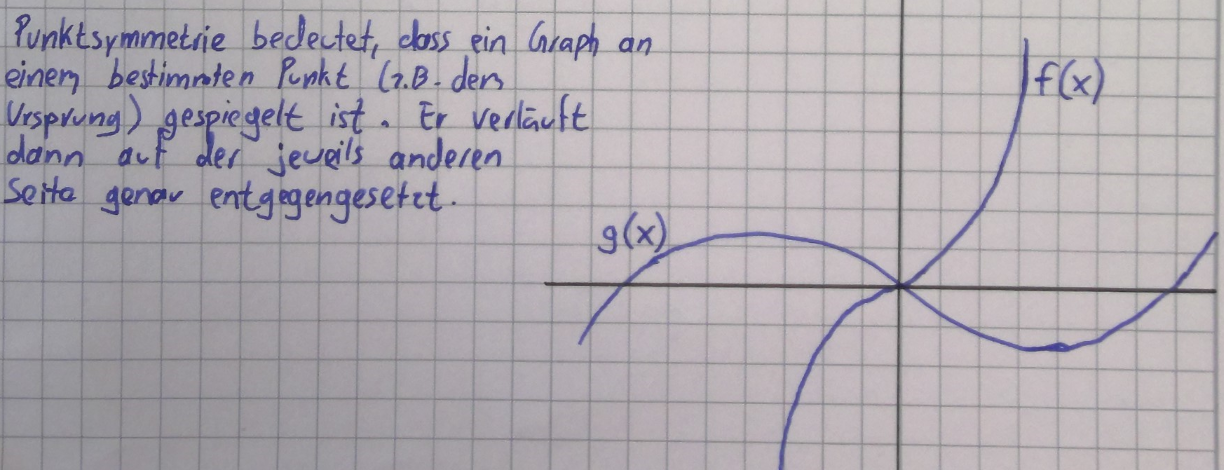 Punktsymmetrie bedeutet, dass ein Graph an
einem bestimmten Punkt (z.B. dem
Ursprung) gespiegelt ist. Er verläuft
dann auf der jeweils anderen
Seite genau entgegengesetzt.
f(x)
g(x)